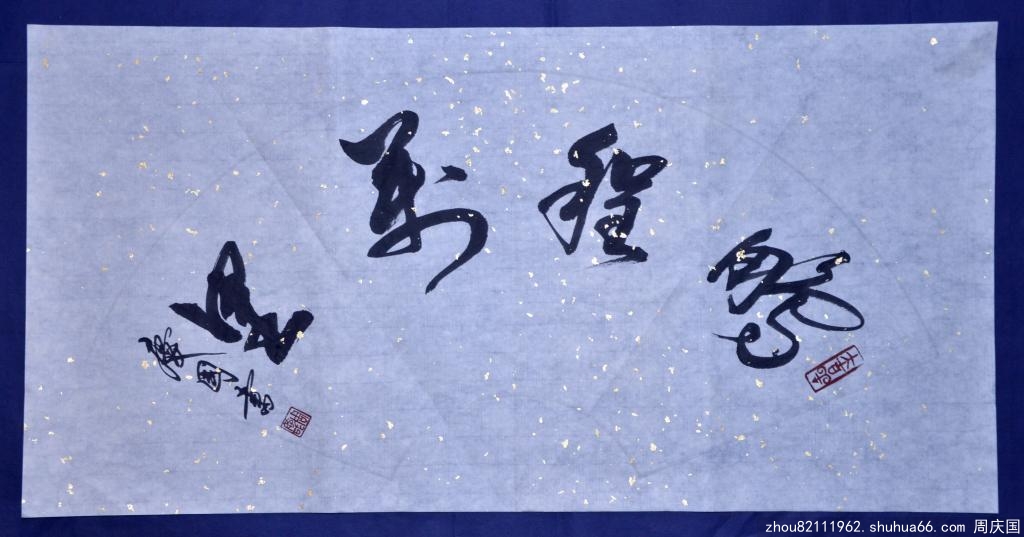 鵬程萬里
慶國書
zhou82111962.shuhua66.com 周庆国